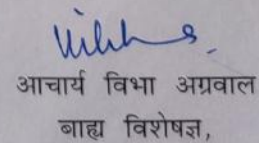 आचार्य विभा अग्रवाल
बाह्य विशेषज्ञ,